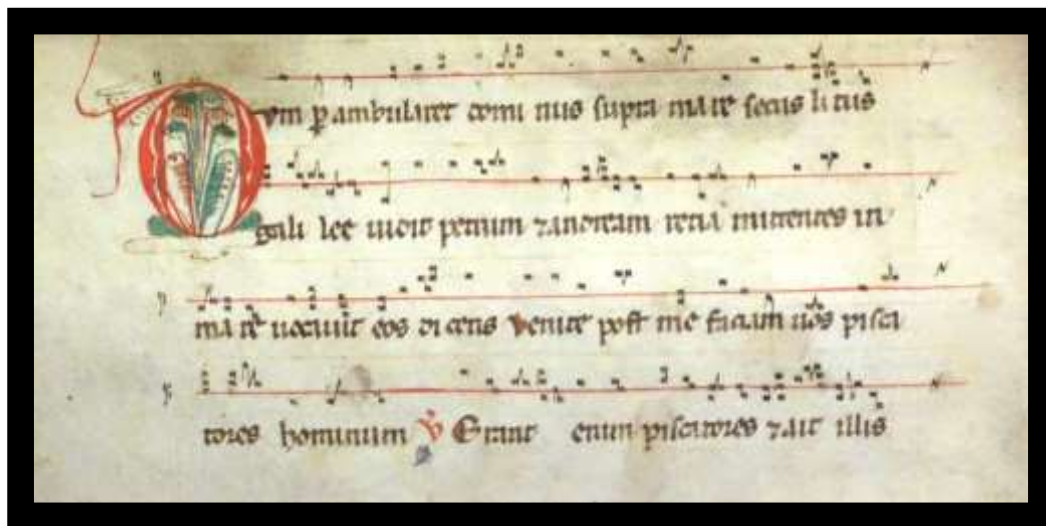 Dum p ambularet domi nus supra mare secus litus
gali lee uidit petrum ⁊andream retia mittentes in
ma re uocauit eos dicens Venite post me faciam uos pisca
tores hominum ℣ Erant enim piscatores ⁊ait illis